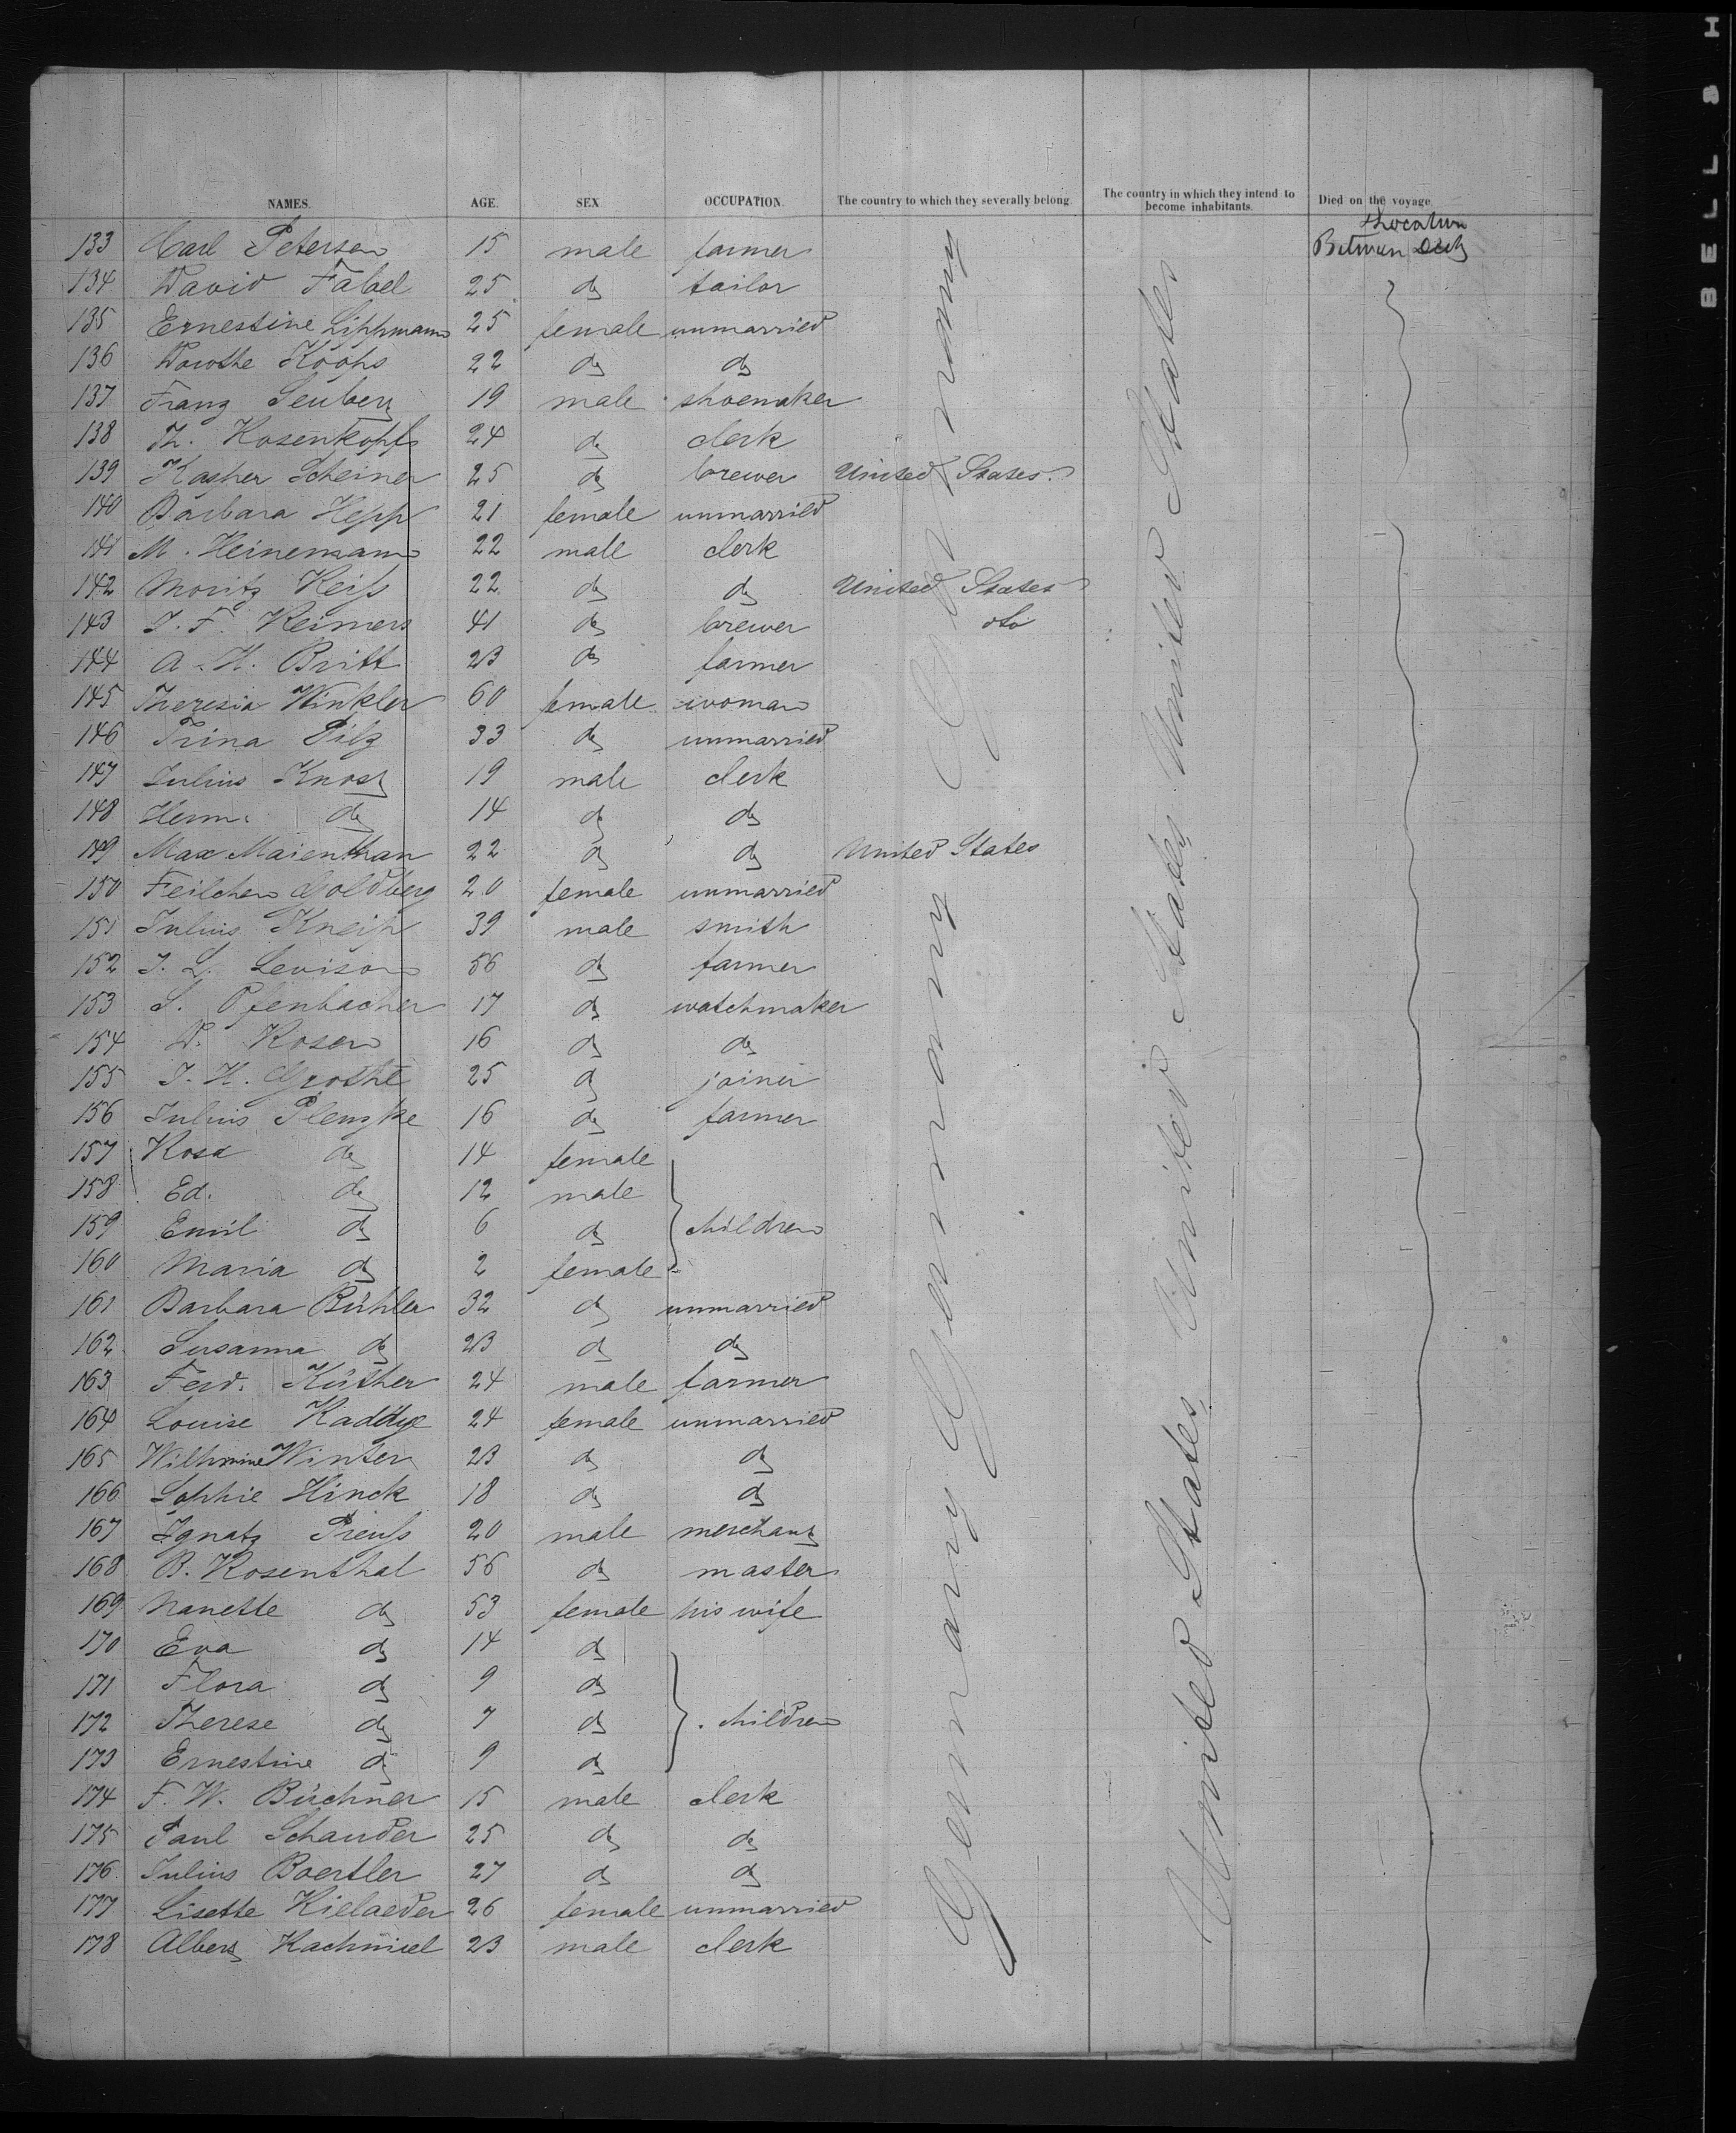 NAMES. AGE. SEX OCCUPATION. The country to which they severally belong. The country in which they intend to become inhabitants. Died on the voyage.
133 Carl Petersen 15 male farmer Between Deck
134 David Fabel 25 do tailor
135 Ernestine Lippmann 25 female unmarried
136 Dorothe Koohs 22 do do
137 Franz Seubert 19 male shoemaker
138 Th. Rosenkopf 24 do clerk
139 Kasper Scheiner 25 do brewer United States.
140 Barbara Hepp 21 female unmarried
141 M. Heinemann 22 male clerk
142 Moritz Heiss 22 do do United States
143 J. F. Reimers 41 do brewer do
144 A. H. Britt 23 do farmer
145 Theresia Winkler 60 female woman
146 Trina Pilz 33 do unmarried
147 Julius Knost 19 male clerk
148 Herm. do 14 do do
149 Max Maienthan 22 do do United States
150 Feilchen Goldberg 20 female unmarried
151 Julius Kneip 39 male smith
152 J. L. Levison 56 do farmer
153 S. Ofenbacher 17 do watchmaker
154 D. Rosen 16 do do
155 J. H. Grothe 25 do joiner
156 Julius Plenzke 16 do farmer
157 Rosa do 14 female
158 Ed. do 12 male
159 Emil do 6 do children
160 Maria do 2 female
161 Barbara Bühler 32 do unmarried
162 Susanna do 23 do do
163 Ferd. Küther 24 male farmer
164 Louise Kaddye 24 female unmarried
165 Wilhmine Winter 23 do do
166 Sophie Hinck 18 do do
167 Ignatz Preuss 20 male merchant
168 B. Rosenthal 56 do master
169 Nanette do 53 female his wife
170 Eva do 14 do
171 Flora do 9 do
172 Therese do 7 do children
173 Ernestine do 9 do
174 F. W. Büchner 15 male clerk
175 Paul Schauder 25 do do
176 Julius Boertler 27 do do
177 Lisette Kielaeder 26 female unmarried
178 Albert Kachnicel 23 male clerk
Germany Germany Germany
United States United States United States
BELL & H